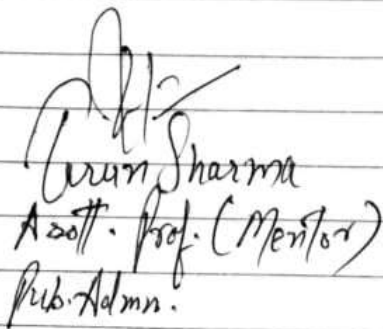 Sharma
Asstt. Prof. (Mentor)
Pub. Admn.